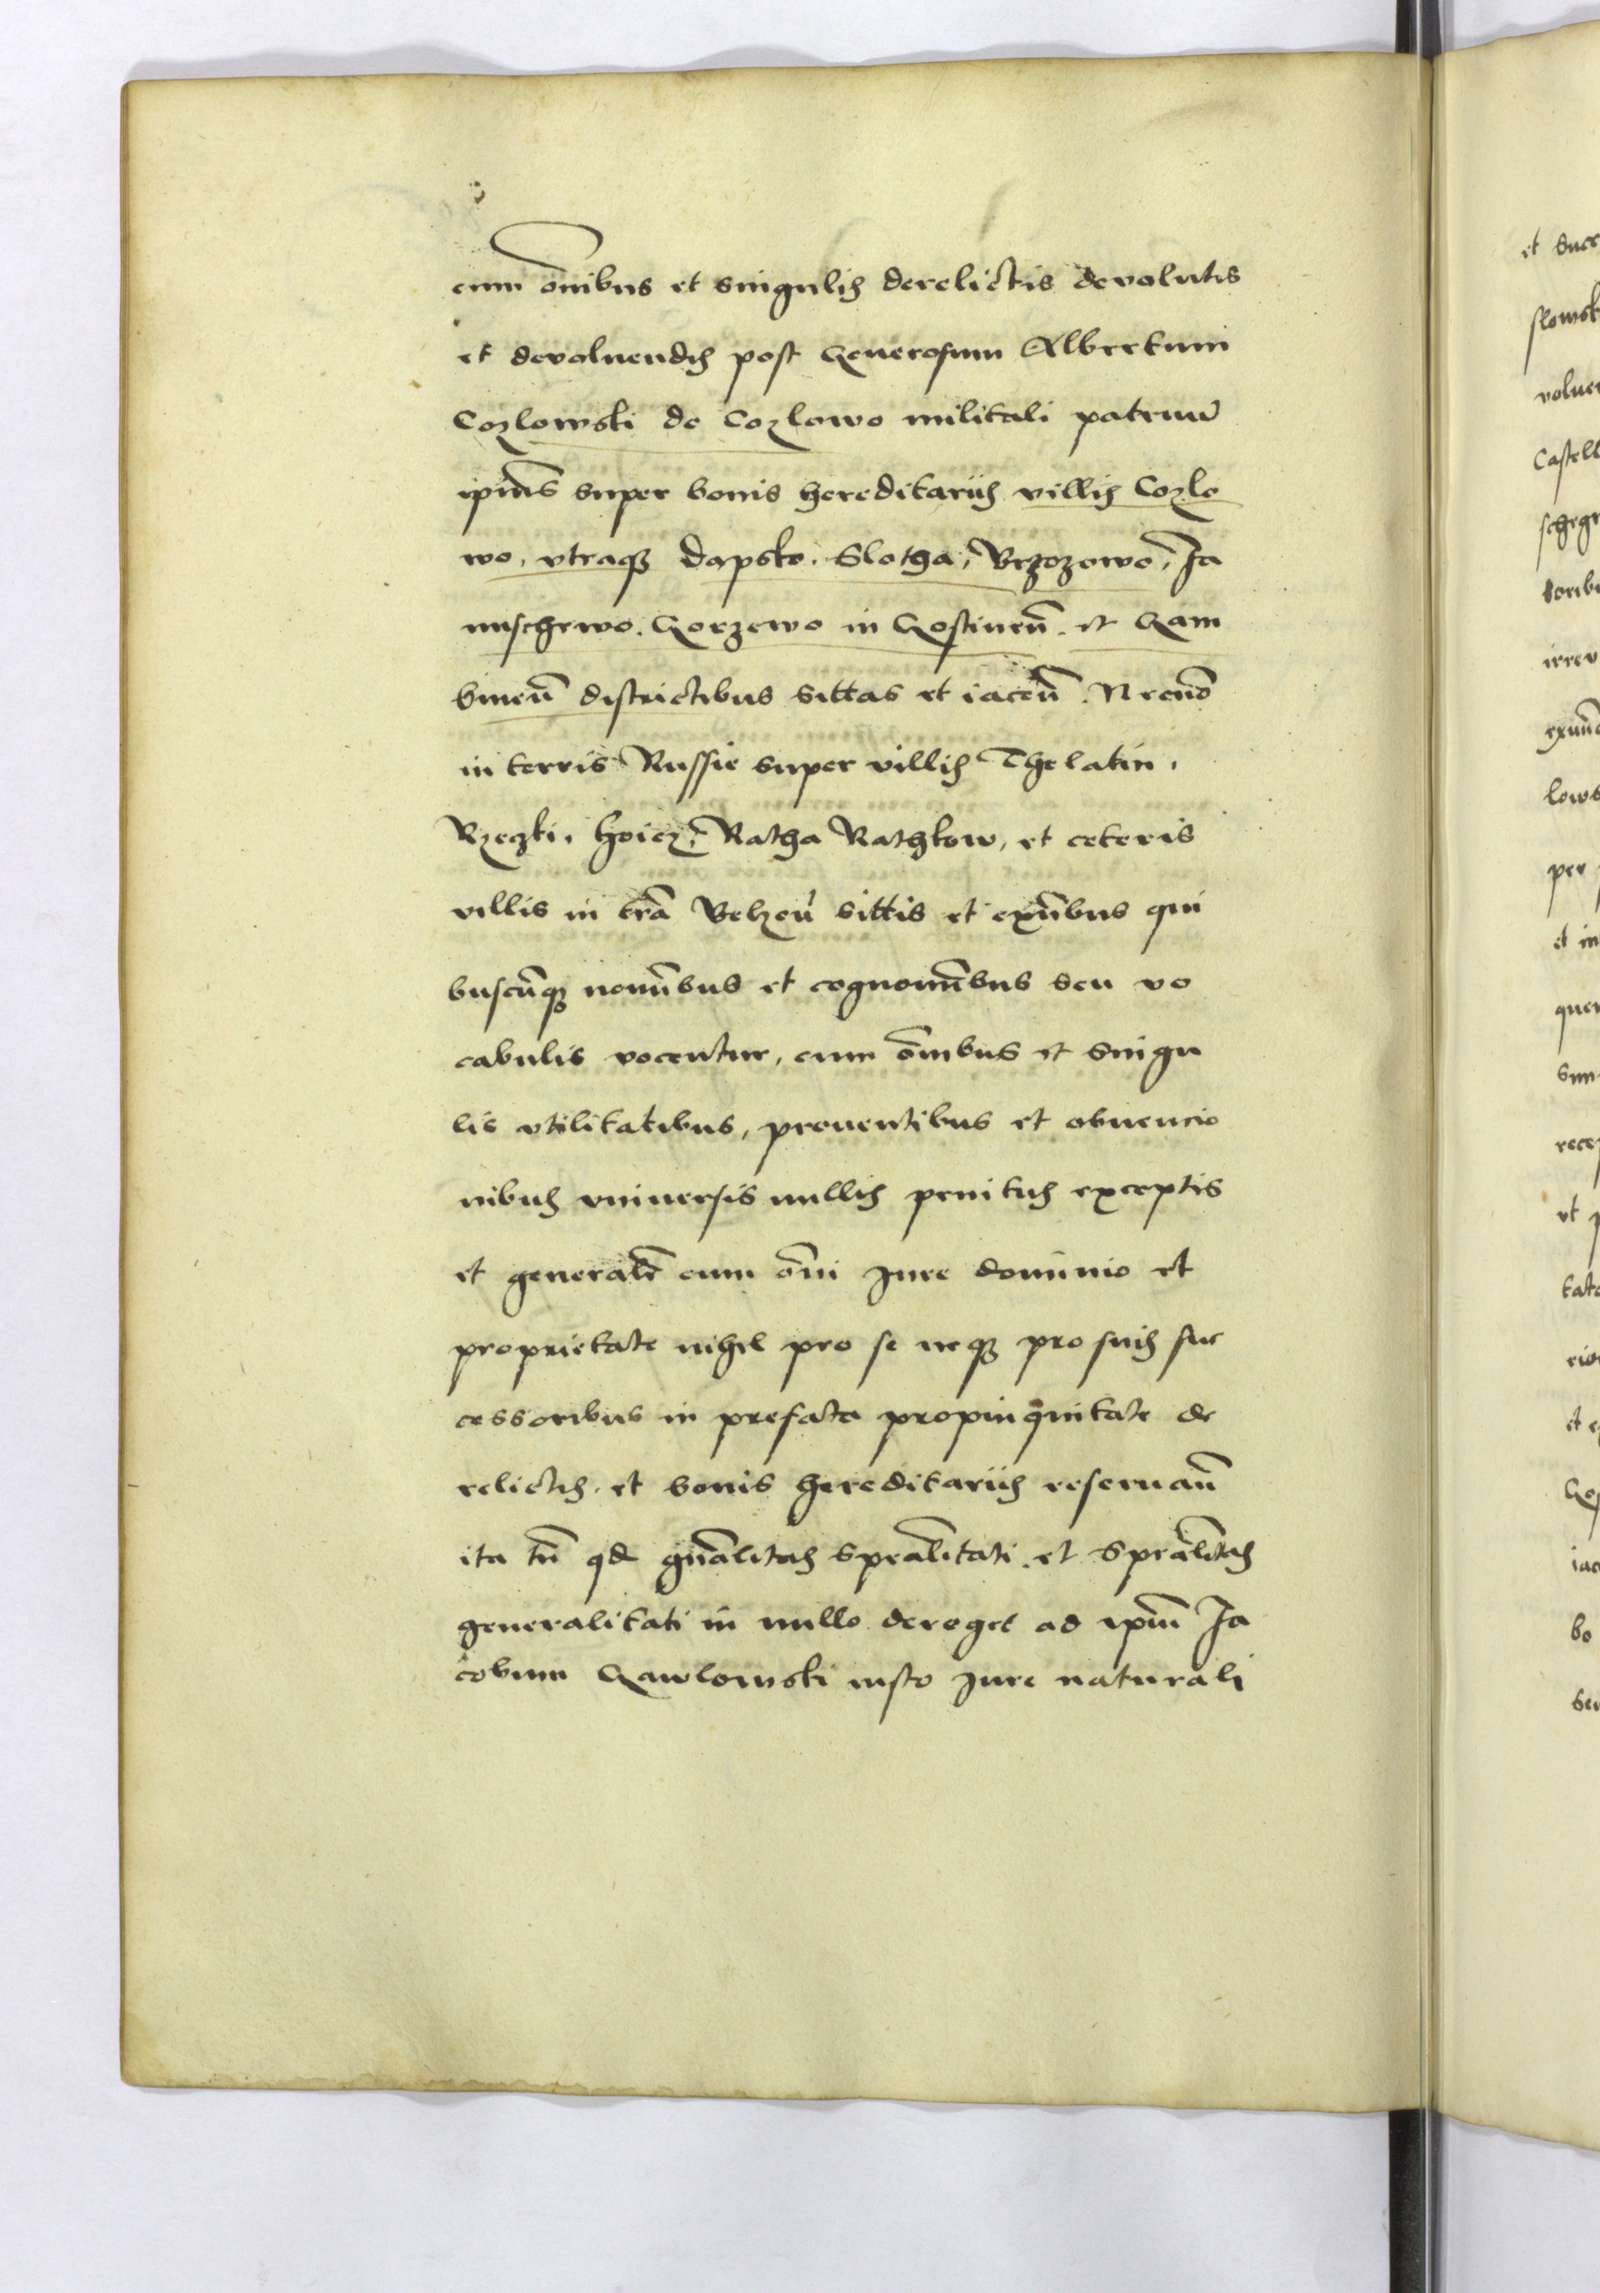 cum o̅nibus et singulis derelictis devolutis
et devoluendis post Generosum Albertum
Cozlowski de Cozlowo militali patruu̅
ip̅ius super bonis hereditariis villis Cozlo
wo, vtraq3 dapsko. Slotha, Brzozowo, Ja
nuschewo. Gorzewo in Gostinen̅. et Gam
binen̅ districtibus sittas et iacen̅. Necno̅
in terris Russie super villis Thelatin,
Rzeczki, hoicz, Ratha Rathkow, et ceteris
villis in tr̅a Belzen̅ sittis et exn̅bus qui
buscu̅q3 nomi̅bus et cognomi̅bus seu vo
cabulis vocentur, cum o̅mbus et singu
lis vtilitatibus, prouentibus et obuencio
nibus vniuersis nullis penitus exceptis
et generalr̅ cum o̅mi Jure dominio et
proprietate nihil pro se neq3 pro suis suc
cessoribus in prefata propinquitate de
relictis. et bonis hereditariis reseruan̅
ita tn̅ qd gn̅alitas spea̅litati. et Spea̅litas
generalitati in nullo deroget ad ip̅m Ja
cobum Gawlowski iusto Jure naturali
et succ
slowsk
volue
Castell
schegr
toribu
irrev
exnn̅
lows
per
et in
quer
sun
rece
vt p
tate
rio
et e
Gos
iac
bo
seu